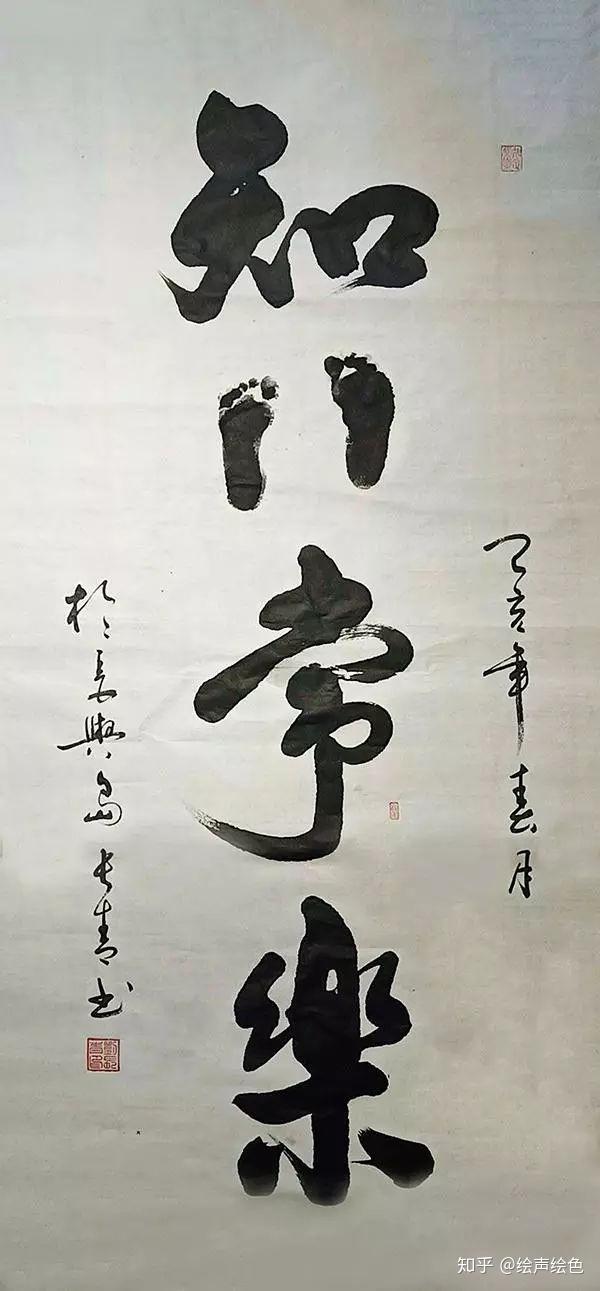 己亥年春月
知常樂
於長興島长青书
知乎 @绘声绘色